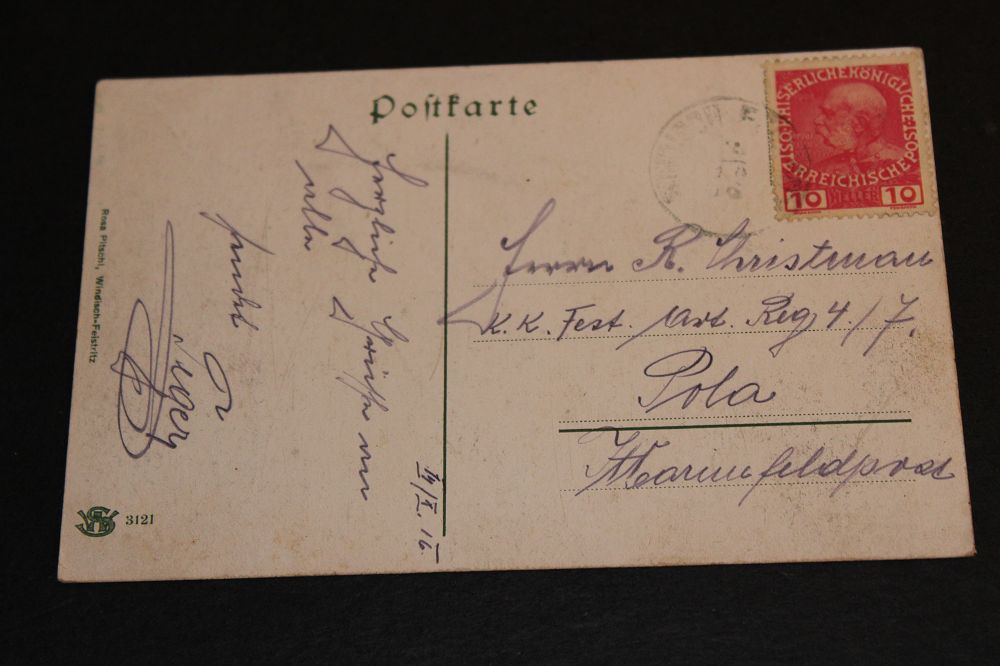 Postkarte
KAISERLICHE KÖNIGLICHE
ÖSTERREICHISCHE POST
10 HELLER 10
Herrn R. Christman
K.K. Fest. Art. Reg 4./7.
Pola
Marinefeldpost
Herzliche Grüsse von
sendet
Rosa Pitschl, Windisch-Feistritz
3121